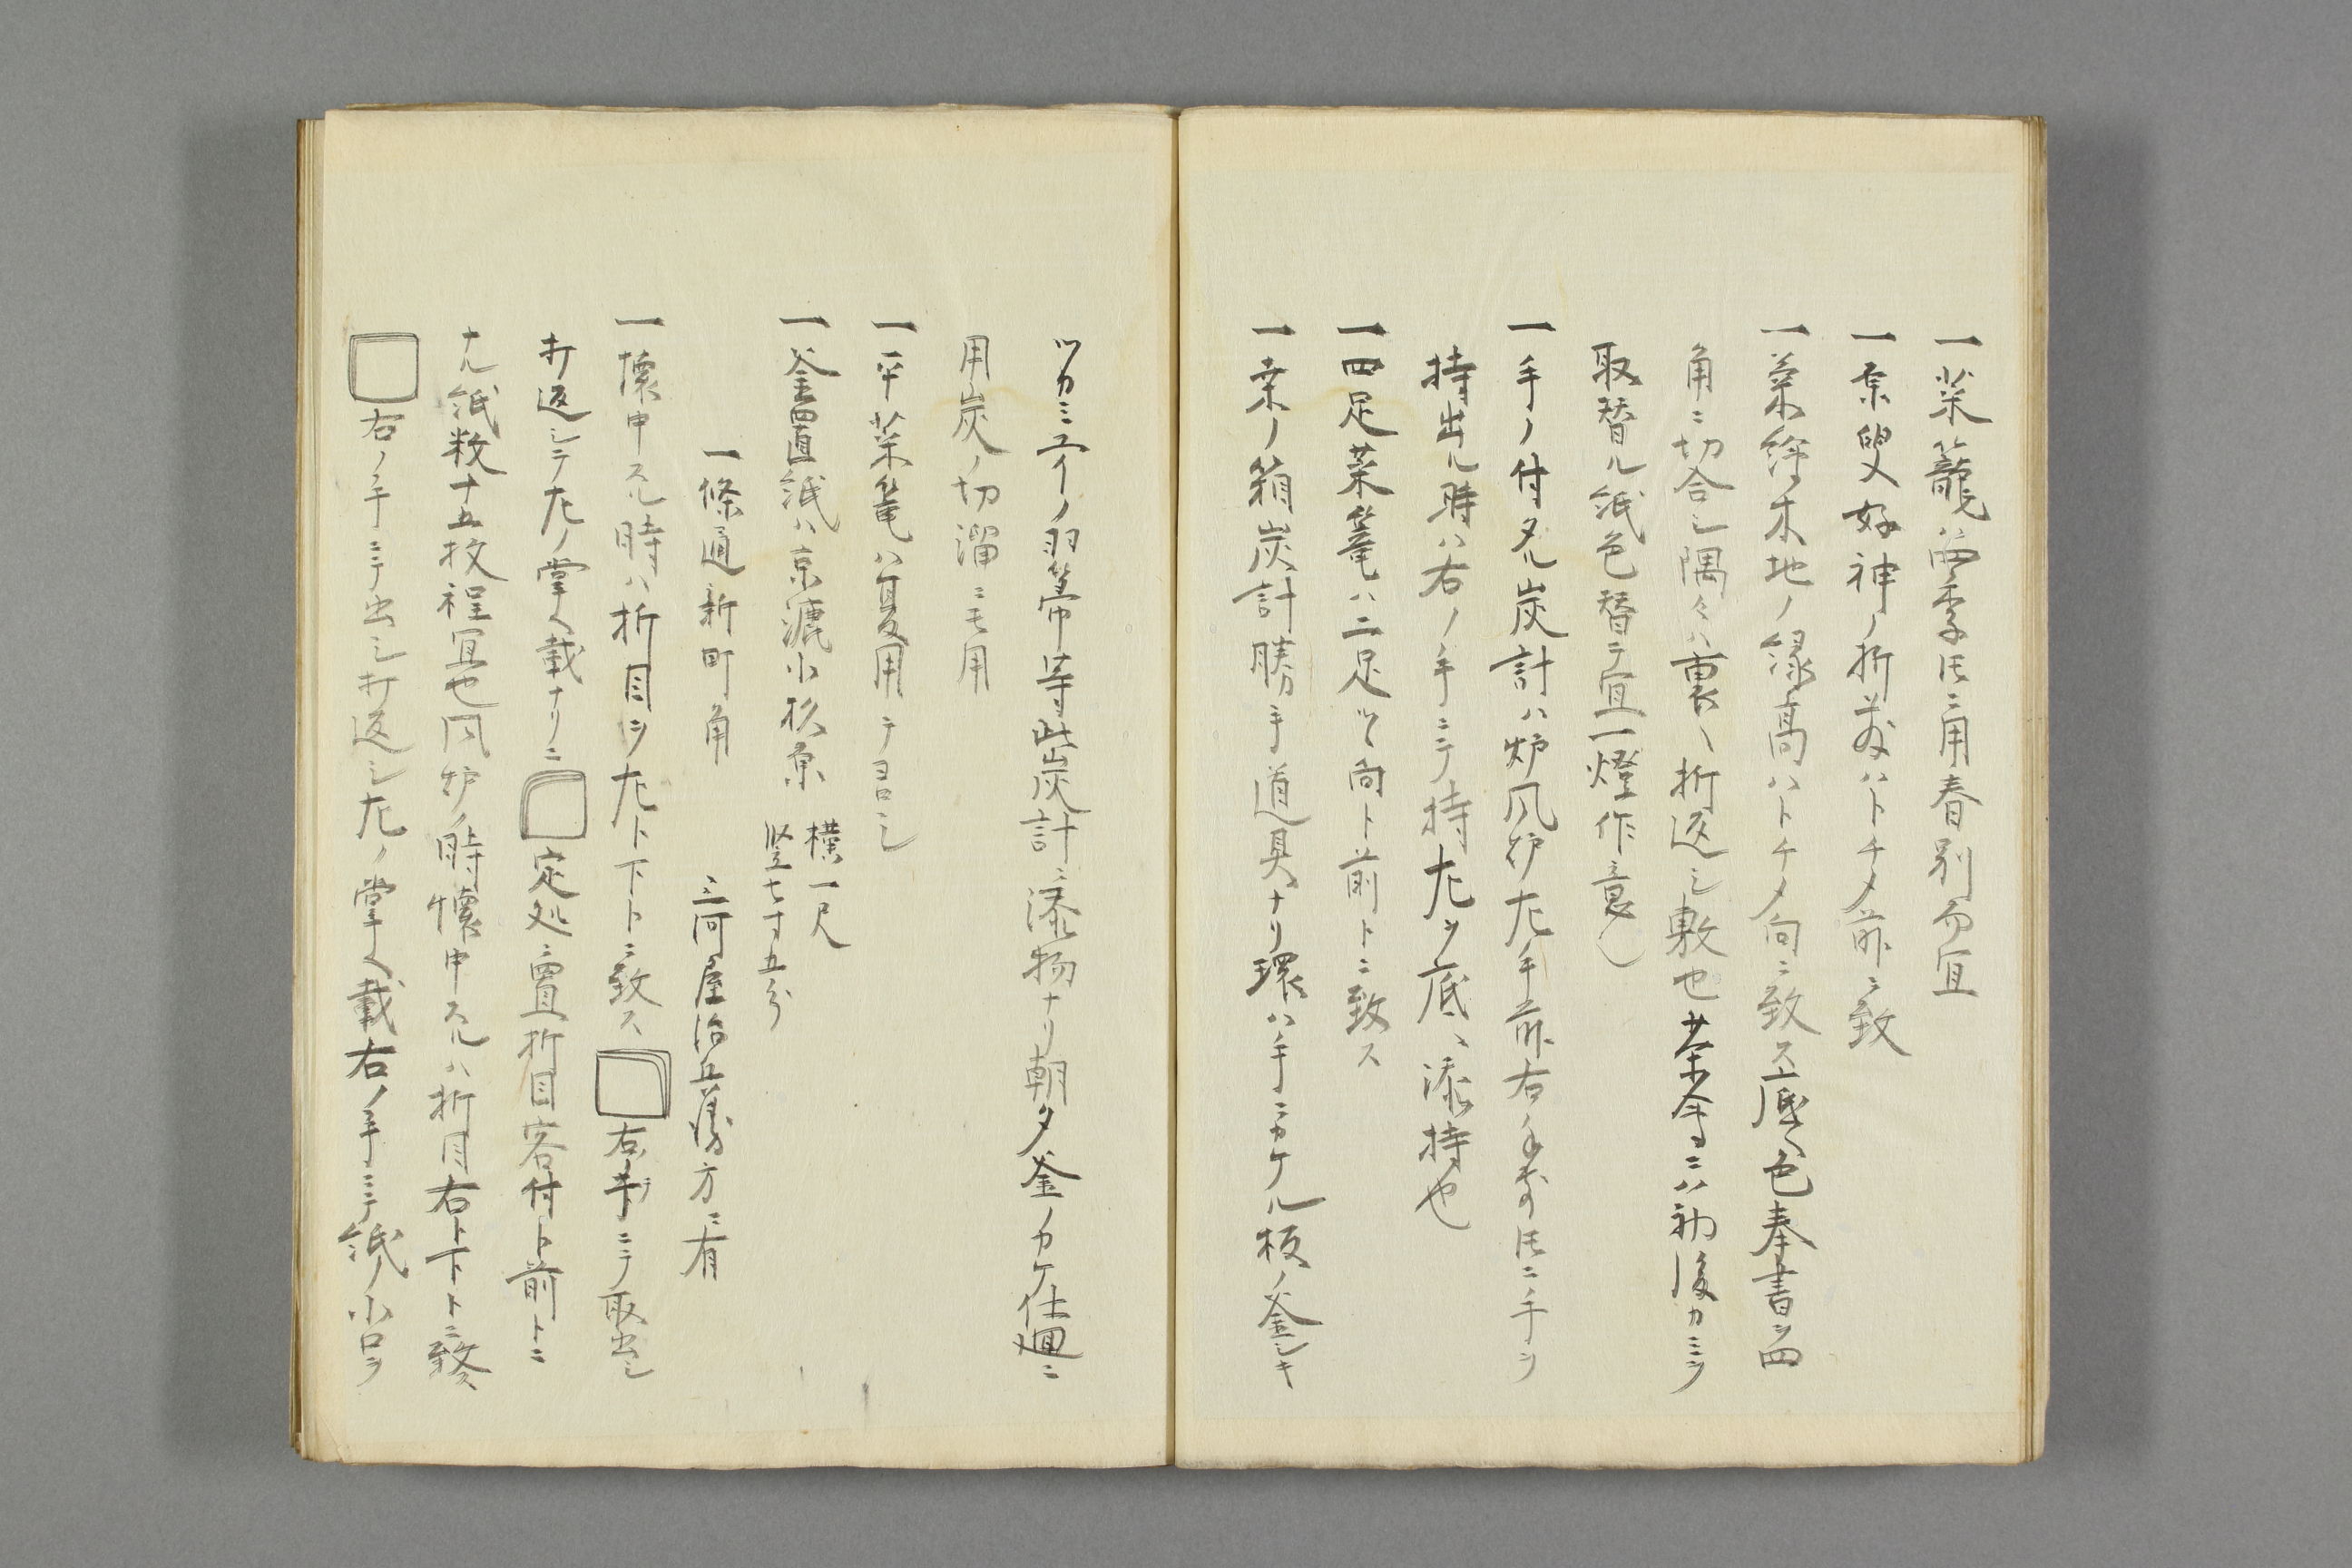 一菜籠ハ四季圧ニ用春別而宜
一原叟好神ノ折敷ハトチメ前ニ致
一菜篭木地ノ縁高ハトチメ向ニ致ス底ヘ色奉書ヲ四
角ニ切合シ隅々ハ裏ヘ折返シ敷也茶会ニハ初後カミヲ
取替ル紙色替テ宜一燈作意
一手ノ付タル炭計ハ炉風炉左手前右手前圧ニ手ヲ
持出ル時ハ右ノ手ニテ持左ヲ底ヘ添持也
一四足菜篭ハ二足ツヽ向ト前トニ致ス
一桑ノ箱炭計勝手道具ナリ環ハ手ニカケル板ノ釜シキ
ツカミユイノ羽箒等此炭計ニ添物ナリ朝夕釜ノカケ仕廻ニ
用炭ノ切溜ニモ用
一平菜篭ハ夏用テヨロシ
一釜置紙ハ京漉小杉原 横一尺 竪七寸五分
一條通新町角 三河屋治兵衛方ニ有
一懐中スル時ハ折目ヲ左ト下トニ致ス 右ノ手ニテ取出シ
打返シテ左ノ掌ヘ載ナリニ 定処ニ置折目客付ト前トニ
ナル紙数十五枚程宜也風炉ノ時懐中スルハ折目右ト下トニ致ス
右ノ手ニテ出シ打返シ左ノ掌ヘ載右ノ手ニテ紙ノ小口ヲ